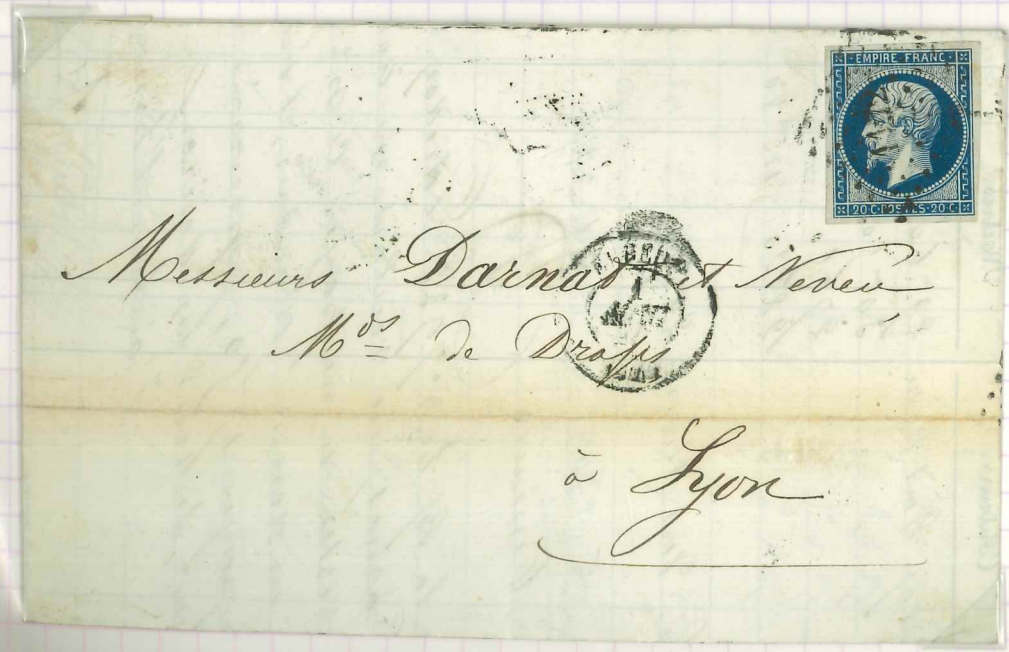 EMPIRE FRANC
20 C · POSTES · 20 C
Messieurs Darnat et Neveu
Mds de Draps
à Lyon
1